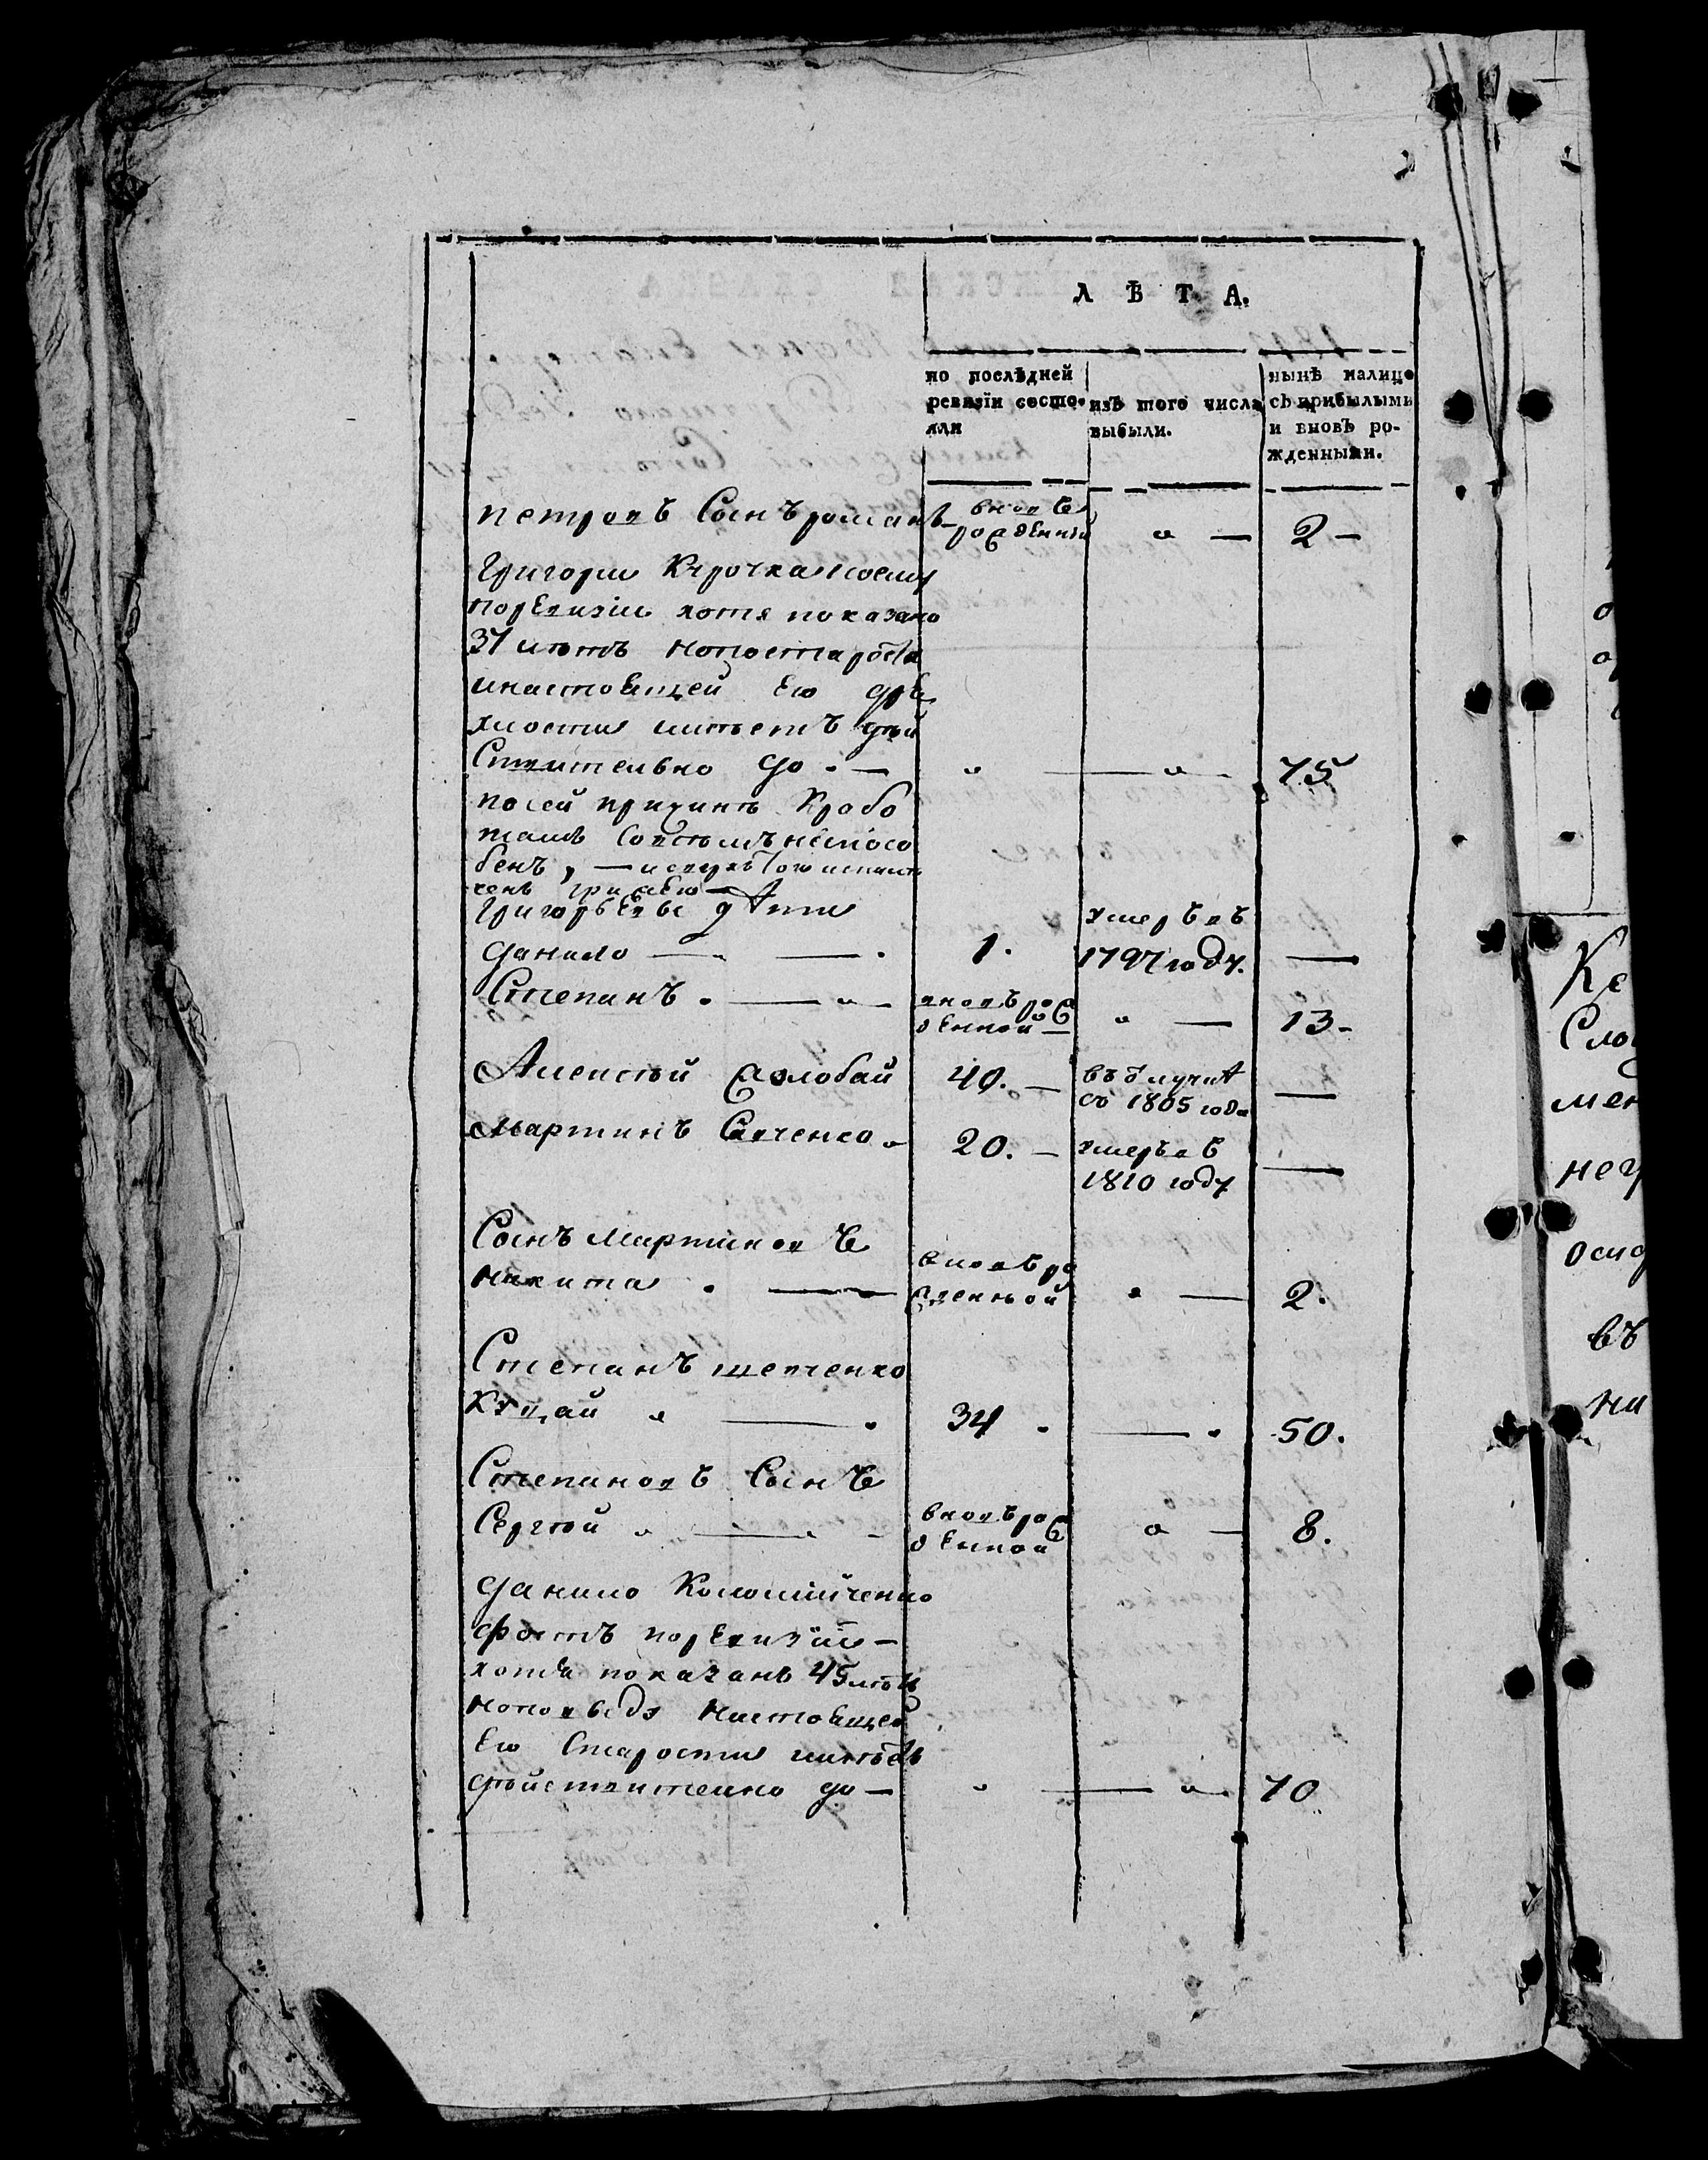 Л Ѣ Т А.
по послѣдней ревизіи состояли
изъ того числа выбыли.
нынѣ на лицо съ прибылыми и вновь рожденными.
петровъ Сынъ романъ вновь рожденный " — 2 —
Григории Кирочка коему
поревизіи хотя показано
31 лѣтъ нопостарости
инастоящеи Его дре
хлости имѣетъ дѣй
Ствительно до " — " — " 75
посей причинѣ Крабо
тамъ Совсѣмъ неспосо
бенъ, —
Григорьевы дѣти
данило — 1. умеръ въ 1797 году. —
Степанъ . — " — вновь рожденной — " — 13 –
Алексѣй 40. — въ бѣгах съ 1805 года —
Мартинъ 20. — умеръ въ 1810 году —
Сынъ Мартиновъ
никита . — вновь рожденной " — 2.
Степанъ шевченко
Куцай " — . 34 . — " 50.
Степановъ Сынъ
Сергѣй " — вновь рожденной " — 8.
данило Коломійченко
поревизіи —
хотя показанъ 45 лѣтъ
но повиду настоящей
Его Старости имѣетъ
дѣйствительно до — " — " 70
Ке
Сло
мен
нег
въ
на